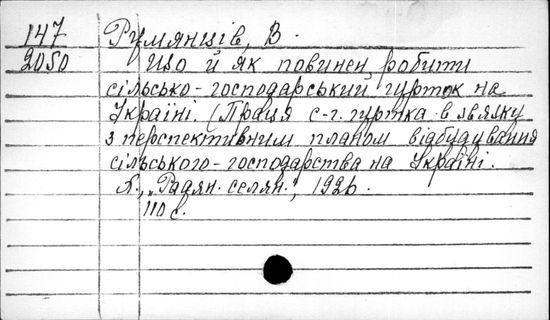 147 Румянців, В.
2050 Що й як повинен робити
сільсько-господарський гурток на
Україні. (Праця с-г. гуртка в звязку
з перспективним планом відбудування
сільського-господарства на Україні.
Х., "Радян. селян.", 1926.
110 с.